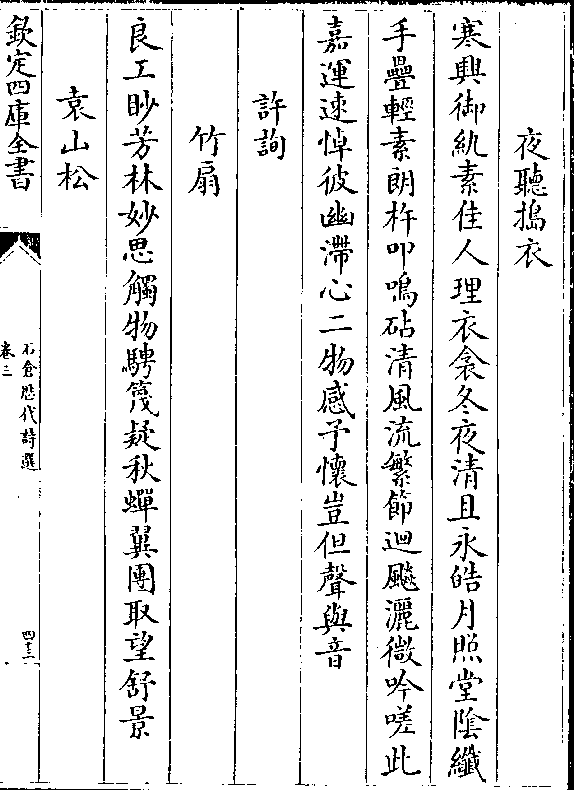 夜聽搗衣
寒興御紈素佳人理衣衾冬夜清且永皓月照堂陰纖
手疊輕素朗杵叩鳴砧清風流繁節迴飇灑微吟嗟此
嘉運速悼彼幽滯心二物感予懷豈但聲與音
許詢
竹扇
良工眇芳林妙思觸物騁篾疑秋蟬翼團取望舒景
袁山松
欽定四庫全書
石倉歴代詩選
卷三
四十二